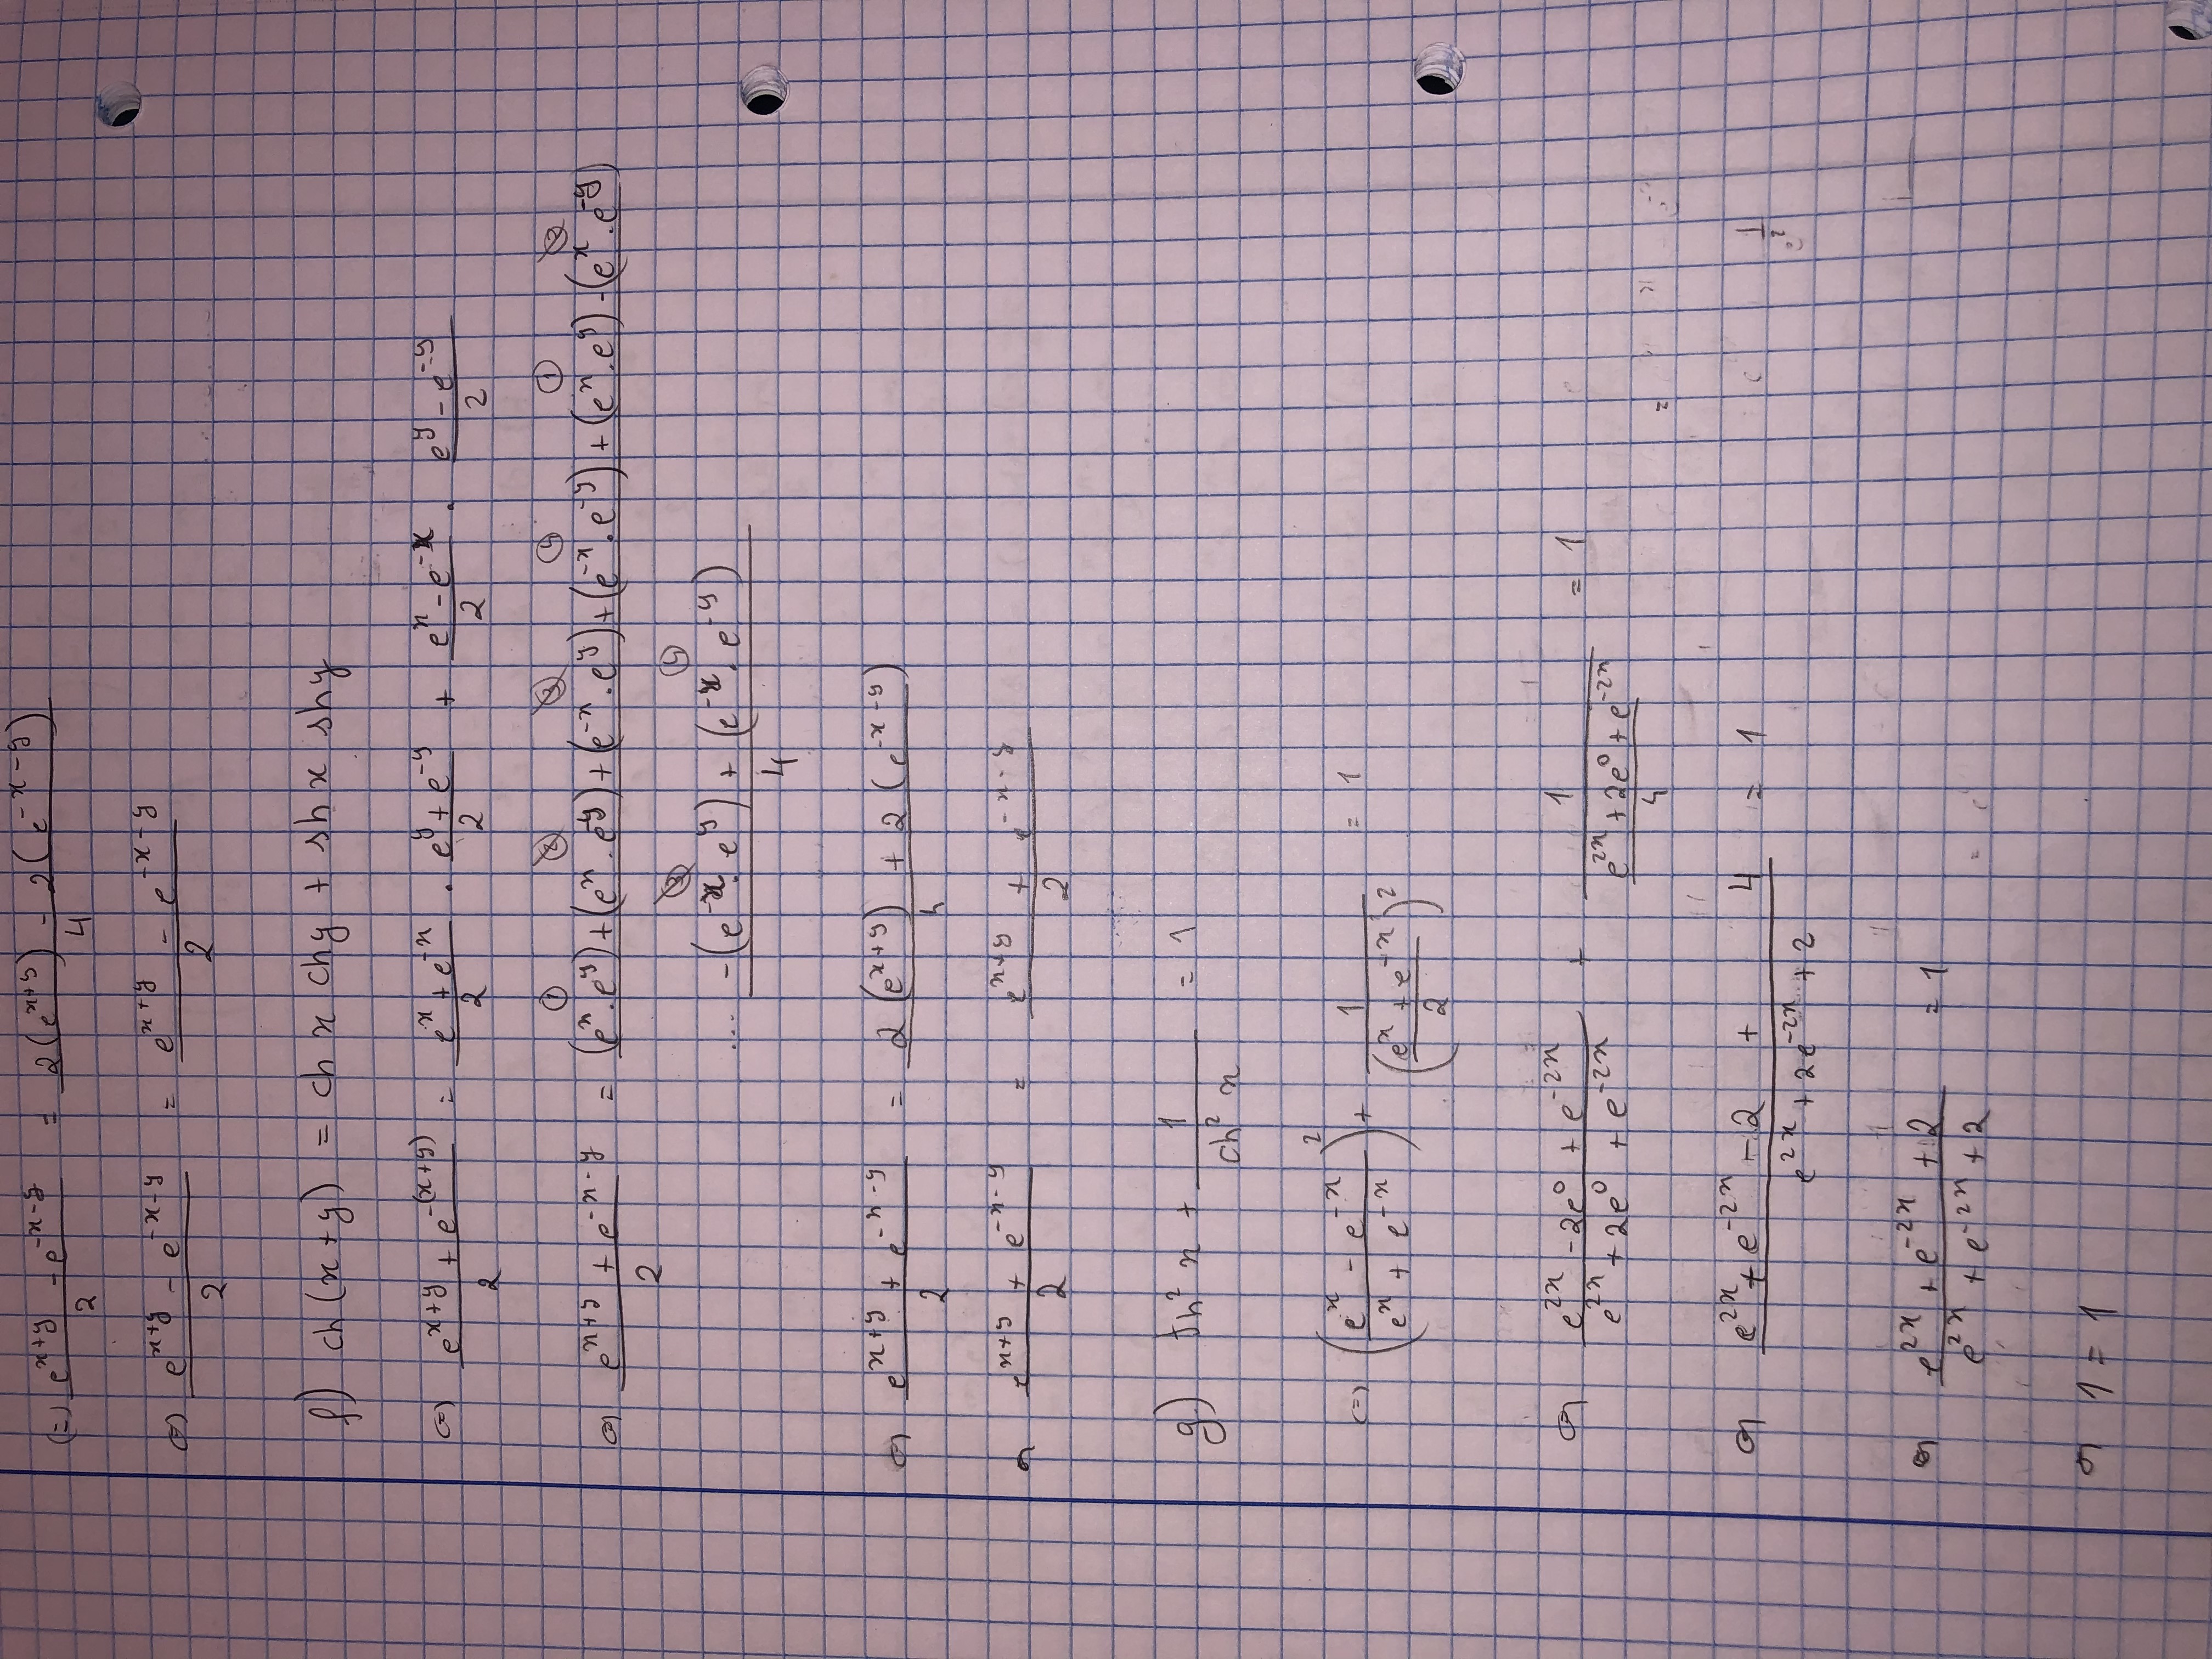 (=) (e^(x+y) - e^(-x-y))/2 = (2(e^(x+y)) - 2(e^(-x-y)))/4
(=) (e^(x+y) - e^(-x-y))/2 = (e^(x+y) - e^(-x-y))/2
f) ch(x+y) = ch x ch y + sh x sh y
(=) (e^(x+y) + e^(-(x+y)))/2 = (e^x + e^(-x))/2 · (e^y + e^(-y))/2 + (e^x - e^(-x))/2 · (e^y - e^(-y))/2
① ② ③ ④ ① ②
(=) (e^(x+y) + e^(-x-y))/2 = (e^x · e^y) + (e^x · e^(-y)) + (e^(-x) · e^y) + (e^(-x) · e^(-y)) + (e^x · e^y) - (e^x · e^(-y))
③ ④
... (-(e^(-x) · e^y) + (e^(-x) · e^(-y)))/4
(=) (e^(x+y) + e^(-x-y))/2 = (2(e^(x+y)) + 2(e^(-x-y)))/4
(=) (e^(x+y) + e^(-x-y))/2 = (e^(x+y) + e^(-x-y))/2
g) th² x + 1/(ch² x) = 1
(=) ((e^x - e^(-x))/(e^x + e^(-x)))² + 1/((e^x + e^(-x))/2)² = 1
(=) (e^(2x) - 2e^0 + e^(-2x))/(e^(2x) + 2e^0 + e^(-2x)) + 1/((e^(2x) + 2e^0 + e^(-2x))/4) = 1
(=) (e^(2x) + e^(-2x) - 2 + 4)/(e^(2x) + 2e^(-2x) + 2) = 1
(=) (e^(2x) + e^(-2x) + 2)/(e^(2x) + e^(-2x) + 2) = 1
(=) 1 = 1